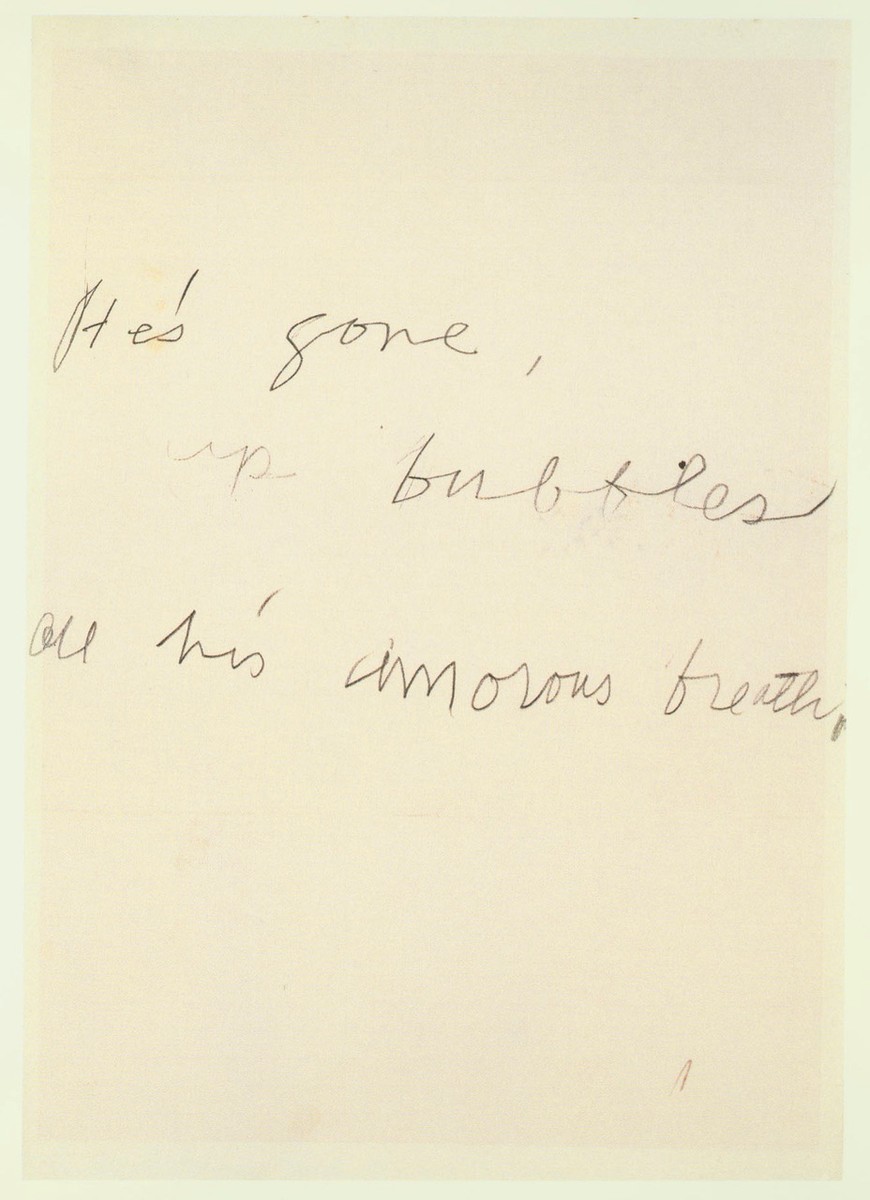 He's gone,
up bubbles
all his amorous breath.